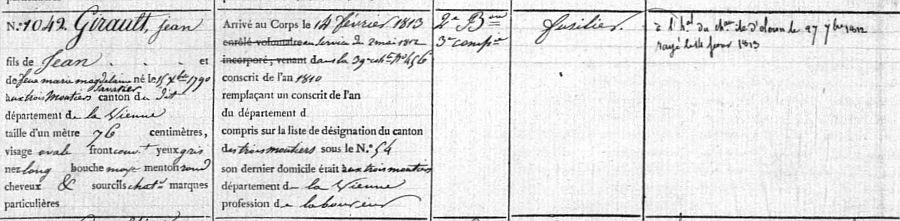 N.º 1042. Girault, Jean
fils de Jean . . . et
de feue marie magdelaine Savatier né le 15 Xbre 1790
aux trois Moutiers canton du dit
département de la Vienne
taille d'un mètre 76 centimètres,
visage ovale front couvt yeux gris
nez long bouche moye menton rond
cheveux & sourcils chatns marques
particulières
Arrivé au Corps le 14 février 1813
enrôlé volontaire en service du 2 mai 1812
incorporé, venant dans la 39e coh. Nº 456
conscrit de l'an 1810
remplaçant un conscrit de l'an
du département d
compris sur la liste de désignation du canton
des trois moutiers sous le N.º 54
son dernier domicile était aux trois moutiers
département de la Vienne
profession de laboureur
2e Bon
3e compie
fusilier
à l'hal du de le 27 7bre 1812
rayé 1813